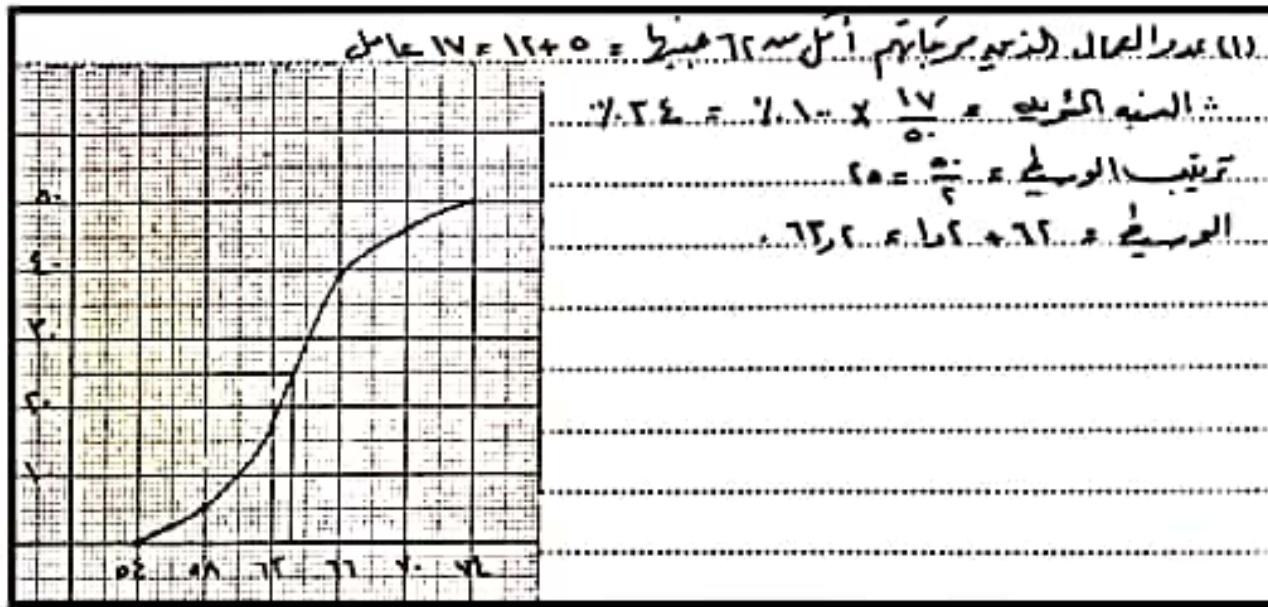 (١) عدد العمال الذين مرتباتهم أقل من ٦٢ جنيها = ٥ + ١٢ = ١٧ عامل
∴ النسبه المئويه = ١٧/٥٠ × ١٠٠٪ = ٣٤٪
ترتيب الوسيط = ٥٠/٢ = ٢٥
الوسيط = ٦٢ + ١,٢ = ٦٣,٢
٥٠
٤٠
٣٠
٢٠
١٠
٥٤ ٥٨ ٦٢ ٦٦ ٧٠ ٧٤